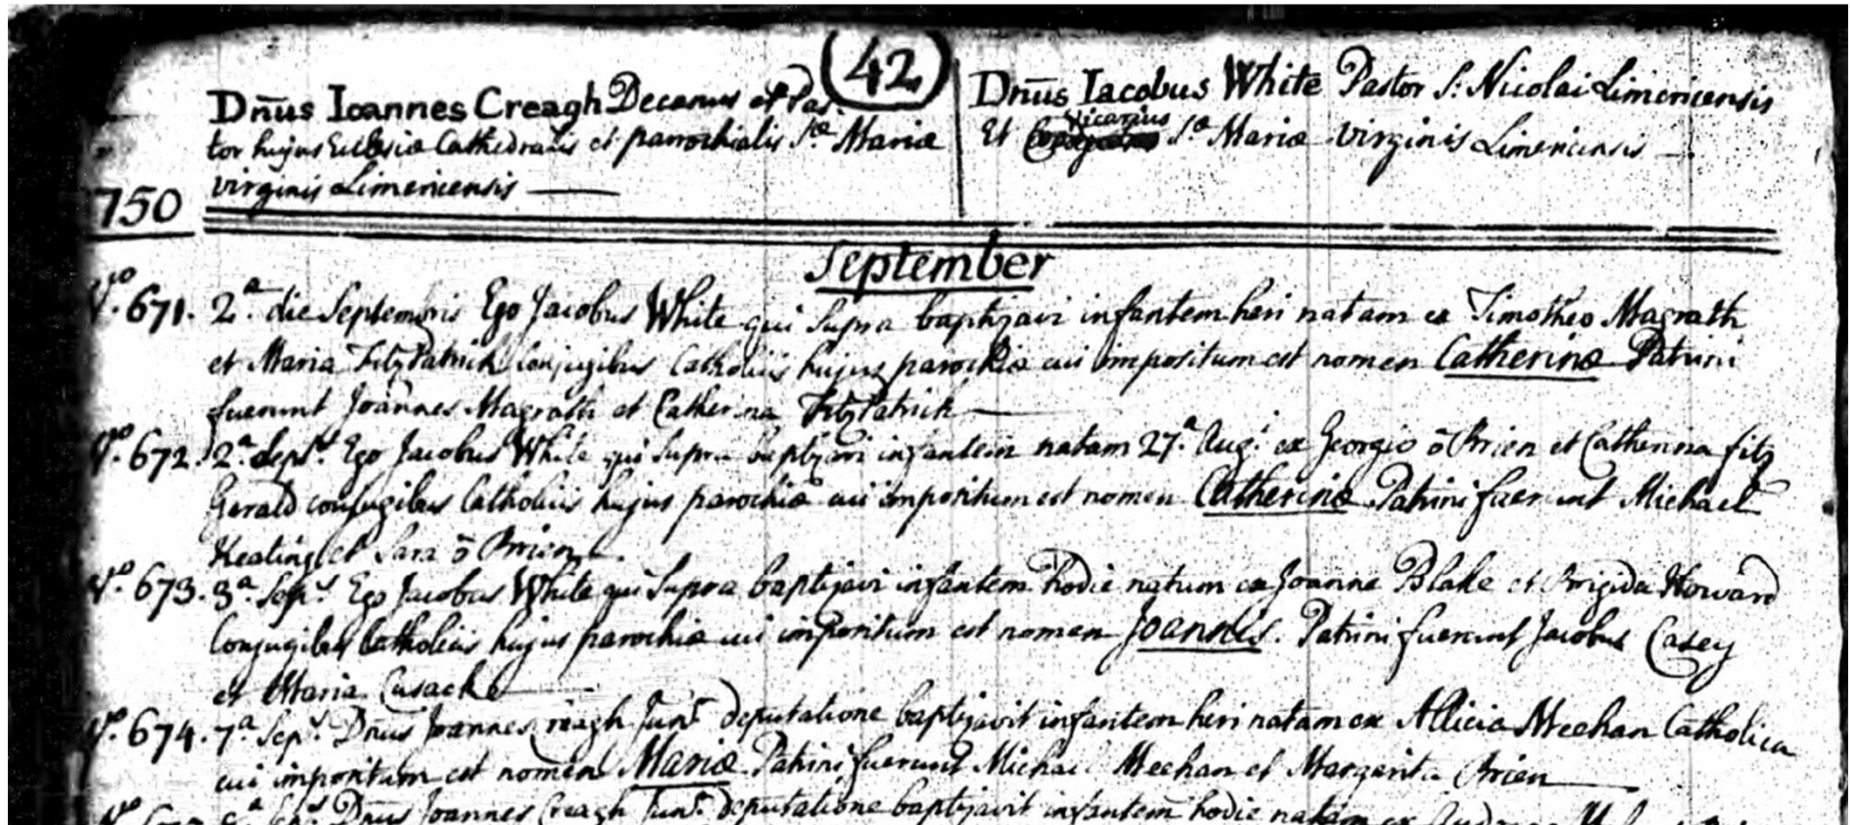 42
Dñus Ioannes Creagh Decanus et Pas
tor hujus Ecclesiæ Cathedralis et parrochialis Stæ Mariæ
virginis Limericensis
Dñus Iacobus White Pastor S: Nicolai Limericensis
Et Vicarius Stæ Mariæ Virginis Limericensis
750
September
No. 671. 2a. die Septembris Ego Jacobus White qui supra baptizavi infantem heri natam ex Timotheo Magrath
et Maria FitzPatrick conjugibus Catholicis hujus parochiæ cui impositum est nomen Catherinæ Patrini
fuerunt Joannes Magrath et Catherina FitzPatrick
No. 672. 2a. Sept. Ego Jacobus White qui supra baptizavi infantem natam 27a. Augi. ex Georgio ō Brien et Catherina fitz
Gerald conjugibus Catholicis hujus parochiæ cui impositum est nomen Catherinæ Patrini fuerunt Michael
Keating et Sara ō Brien
No. 673. 3a. Sepis Ego Jacobus White qui supra baptizavi infantem hodie natum ex Joanne Blake et Brigida Howard
Conjugibus Catholicis hujus parochiæ cui impositum est nomen Joannis. Patrini fuerunt Jacobus Casey
et Maria Cusacke
No. 674. 7a Sepis Dñus Joannes Creagh Junr deputatione baptizavit infantem heri natam ex Allicia Meehan Catholica
cui impositum est nomen Mariæ Patrini fuerunt Michael Meehan et Margarita Brien
Dñus Joannes Creagh Junr deputatione baptizavit infantem hodie natam ex